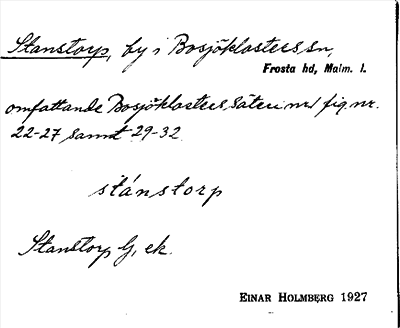 Stanstorp, by i Bosjöklosters sn,
Frosta hd, Malm. l.
omfattande Bosjöklosters säteri nr 1 fig. nr.
22-27 samt 29-32.
stánstorp
Stanstorp G, ek.
EINAR HOLMBERG 1927